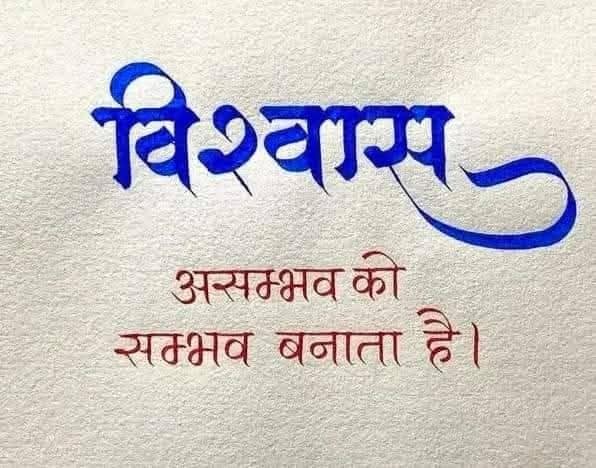 विश्वास
असम्भव को
सम्भव बनाता है।